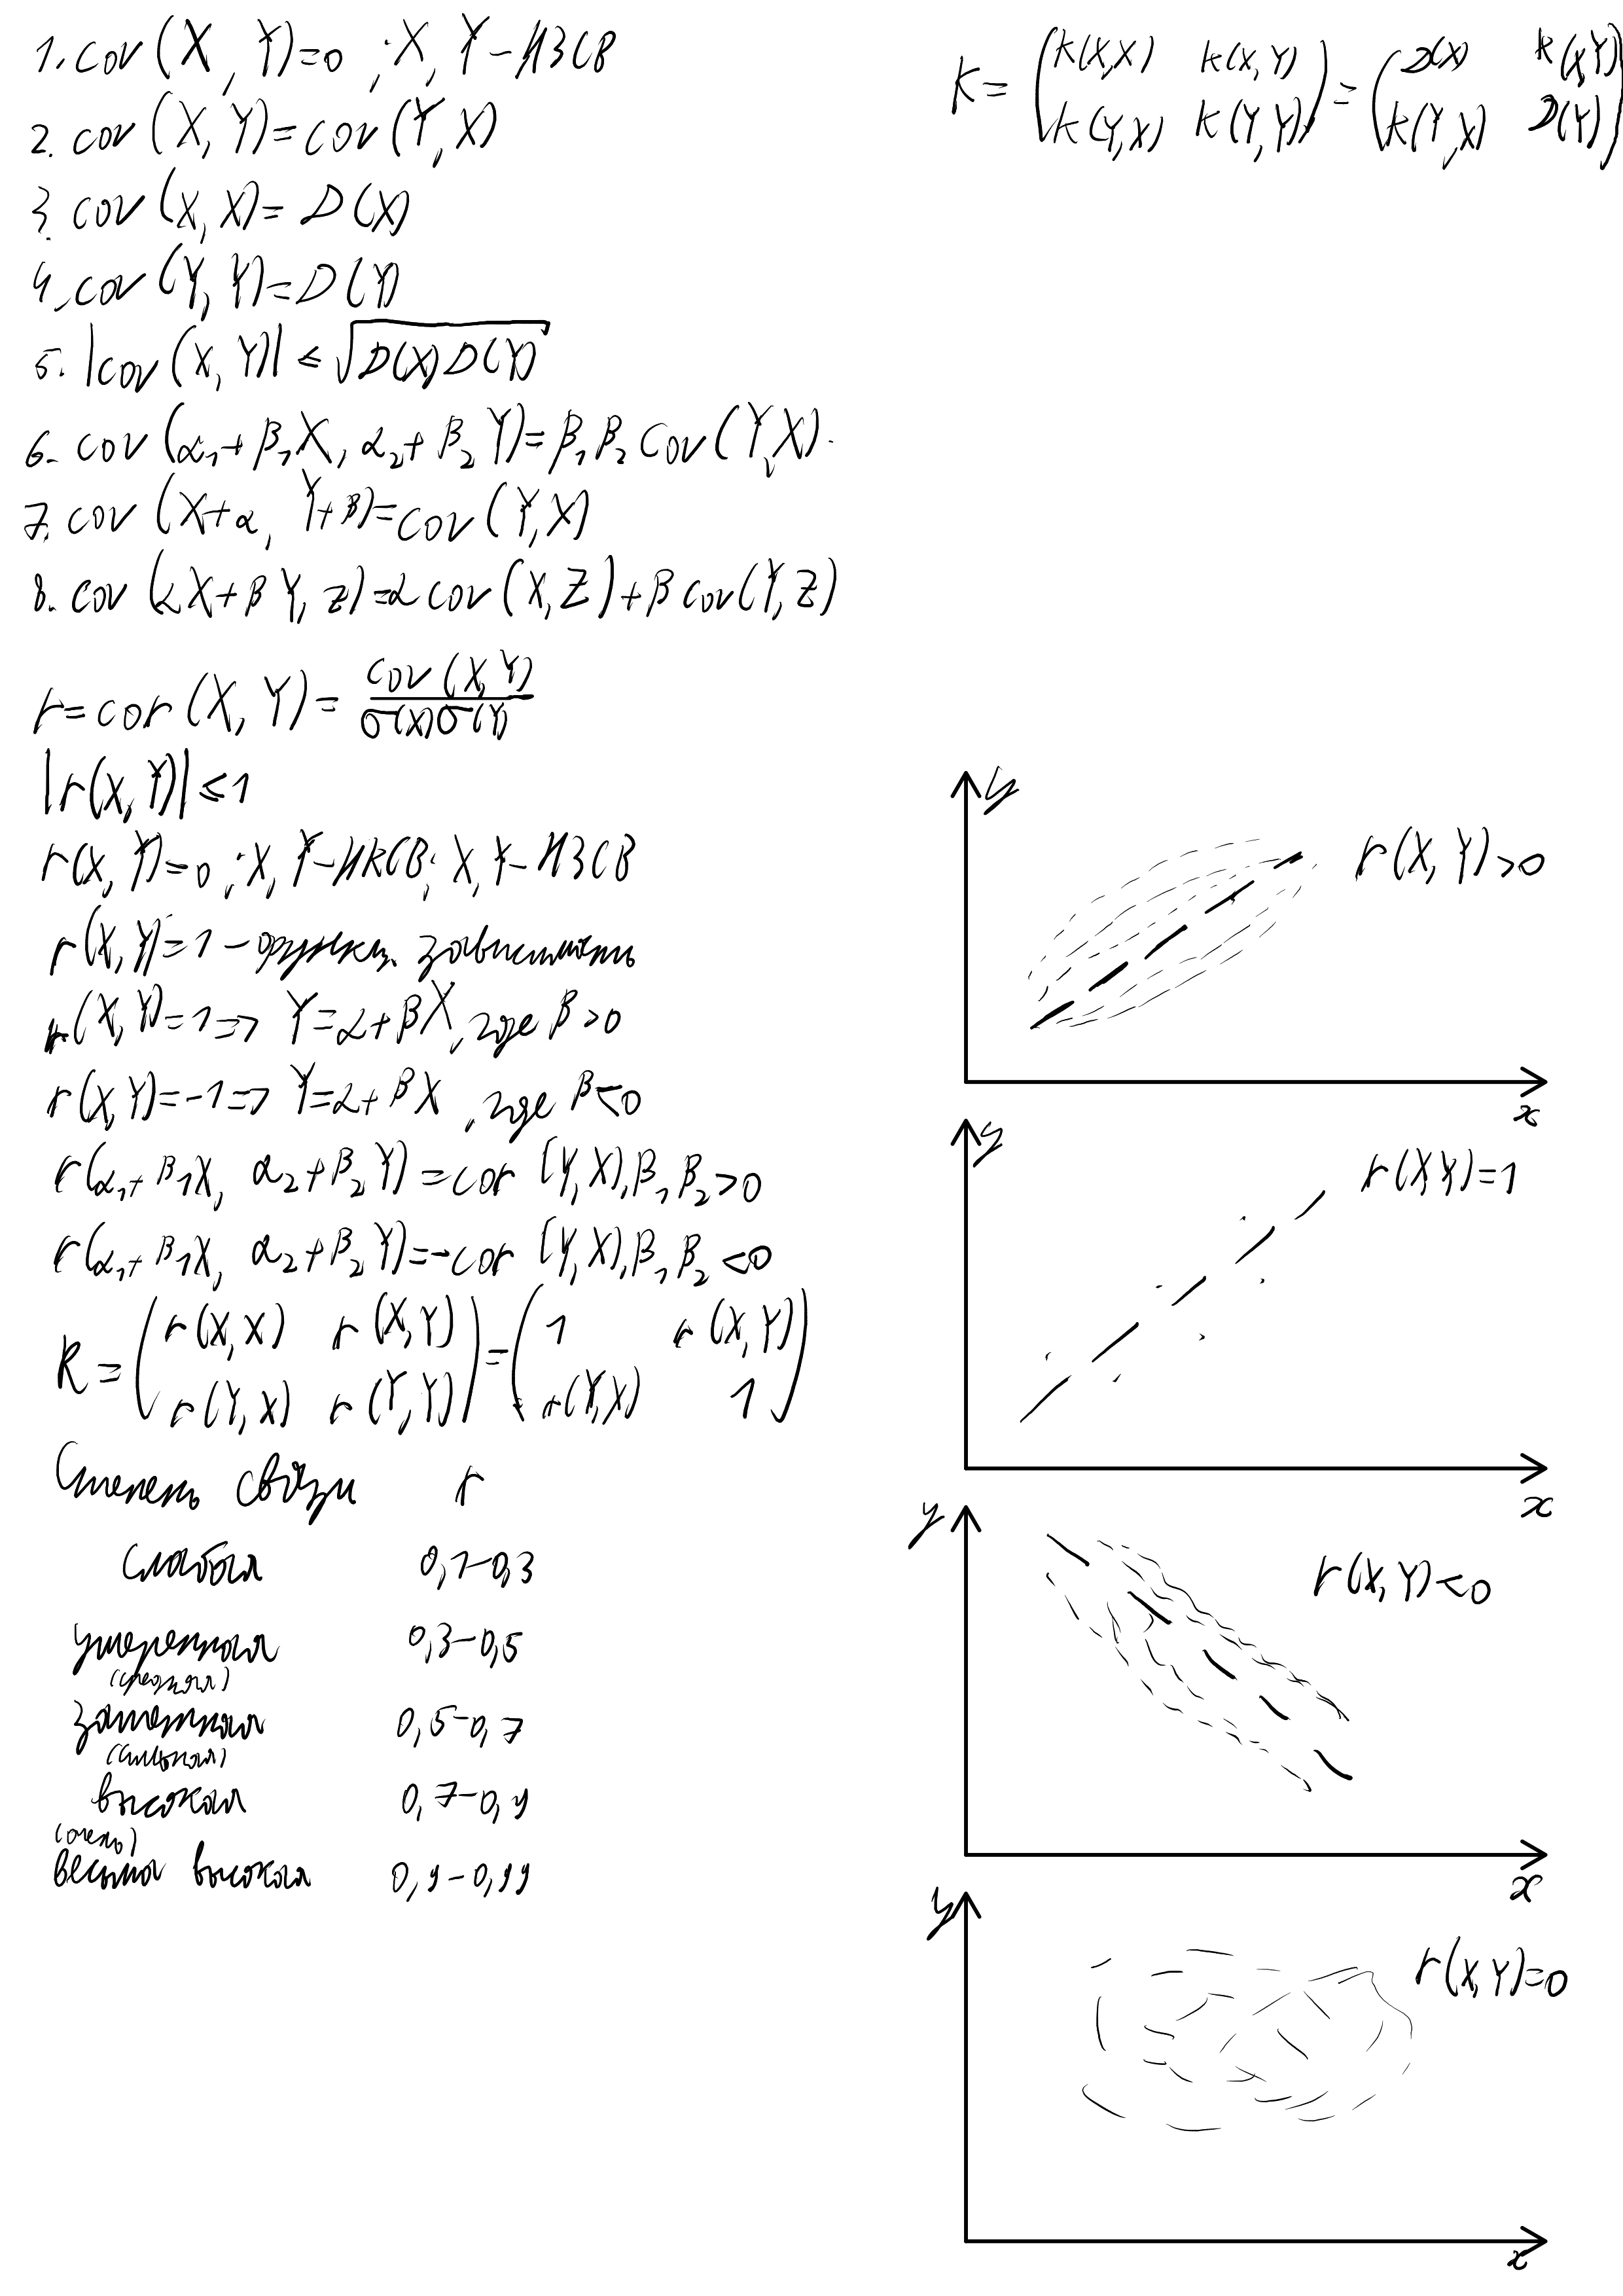 1. cov(X, Y)=0 ; X, Y - НЗСВ
2. cov(X, Y)=cov(Y, X)
3. cov(X, X)=D(X)
4. cov(Y, Y)=D(Y)
5. |cov(X, Y)| ≤ √D(X)D(Y)
6. cov(α₁+β₁X, α₂+β₂Y)=β₁β₂cov(Y, X).
7. cov(X+α, Y+β)=cov(Y, X)
8. cov(αX+βY, Z)=αcov(X, Z)+βcov(Y, Z)
r=cor(X, Y)=cov(X, Y)/σ(X)σ(Y)
|r(X, Y)| ≤ 1
r(X, Y)=0 ; X, Y - НКСВ; X, Y - НЗСВ
r(X, Y)=1 - функц. зависимость
r(X, Y)=1 => Y=α+βX, где β>0
r(X, Y)=-1 => Y=α+βX, где β<0
r(α₁+β₁X, α₂+β₂Y)=cor(Y, X), β₁β₂>0
r(α₁+β₁X, α₂+β₂Y)=-cor(Y, X), β₁β₂<0
R=(r(X, X) r(X, Y)
r(Y, X) r(Y, Y))=(1 r(X, Y)
r(Y, X) 1)
Степень связи r
слабая 0,1-0,3
умеренная 0,3-0,5
(средняя)
заметная 0,5-0,7
(сильная)
высокая 0,7-0,9
(очень)
весьма высокая 0,9-0,99
K=(k(X,X) k(X, Y)
k(Y, X) k(Y, Y))=(D(X) k(X, Y)
k(Y, X) D(Y))
y
r(X, Y)>0
x
y
r(X, Y)=1
x
y
r(X, Y)<0
x
y
r(X, Y)=0
x